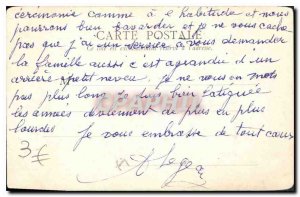 cérémonie comme à l'habitude et nous
pourrons bien bavarder et je ne vous cache
CARTE POSTALE
pas que j'ai un service à vous demander
la famille aussi c'est agrandie d'un
arrière petit neveu je ne vous en mets
pas plus long je suis bien fatiguée
les années deviennent de plus en plus
lourdes je vous embrasse de tout cœur
3€